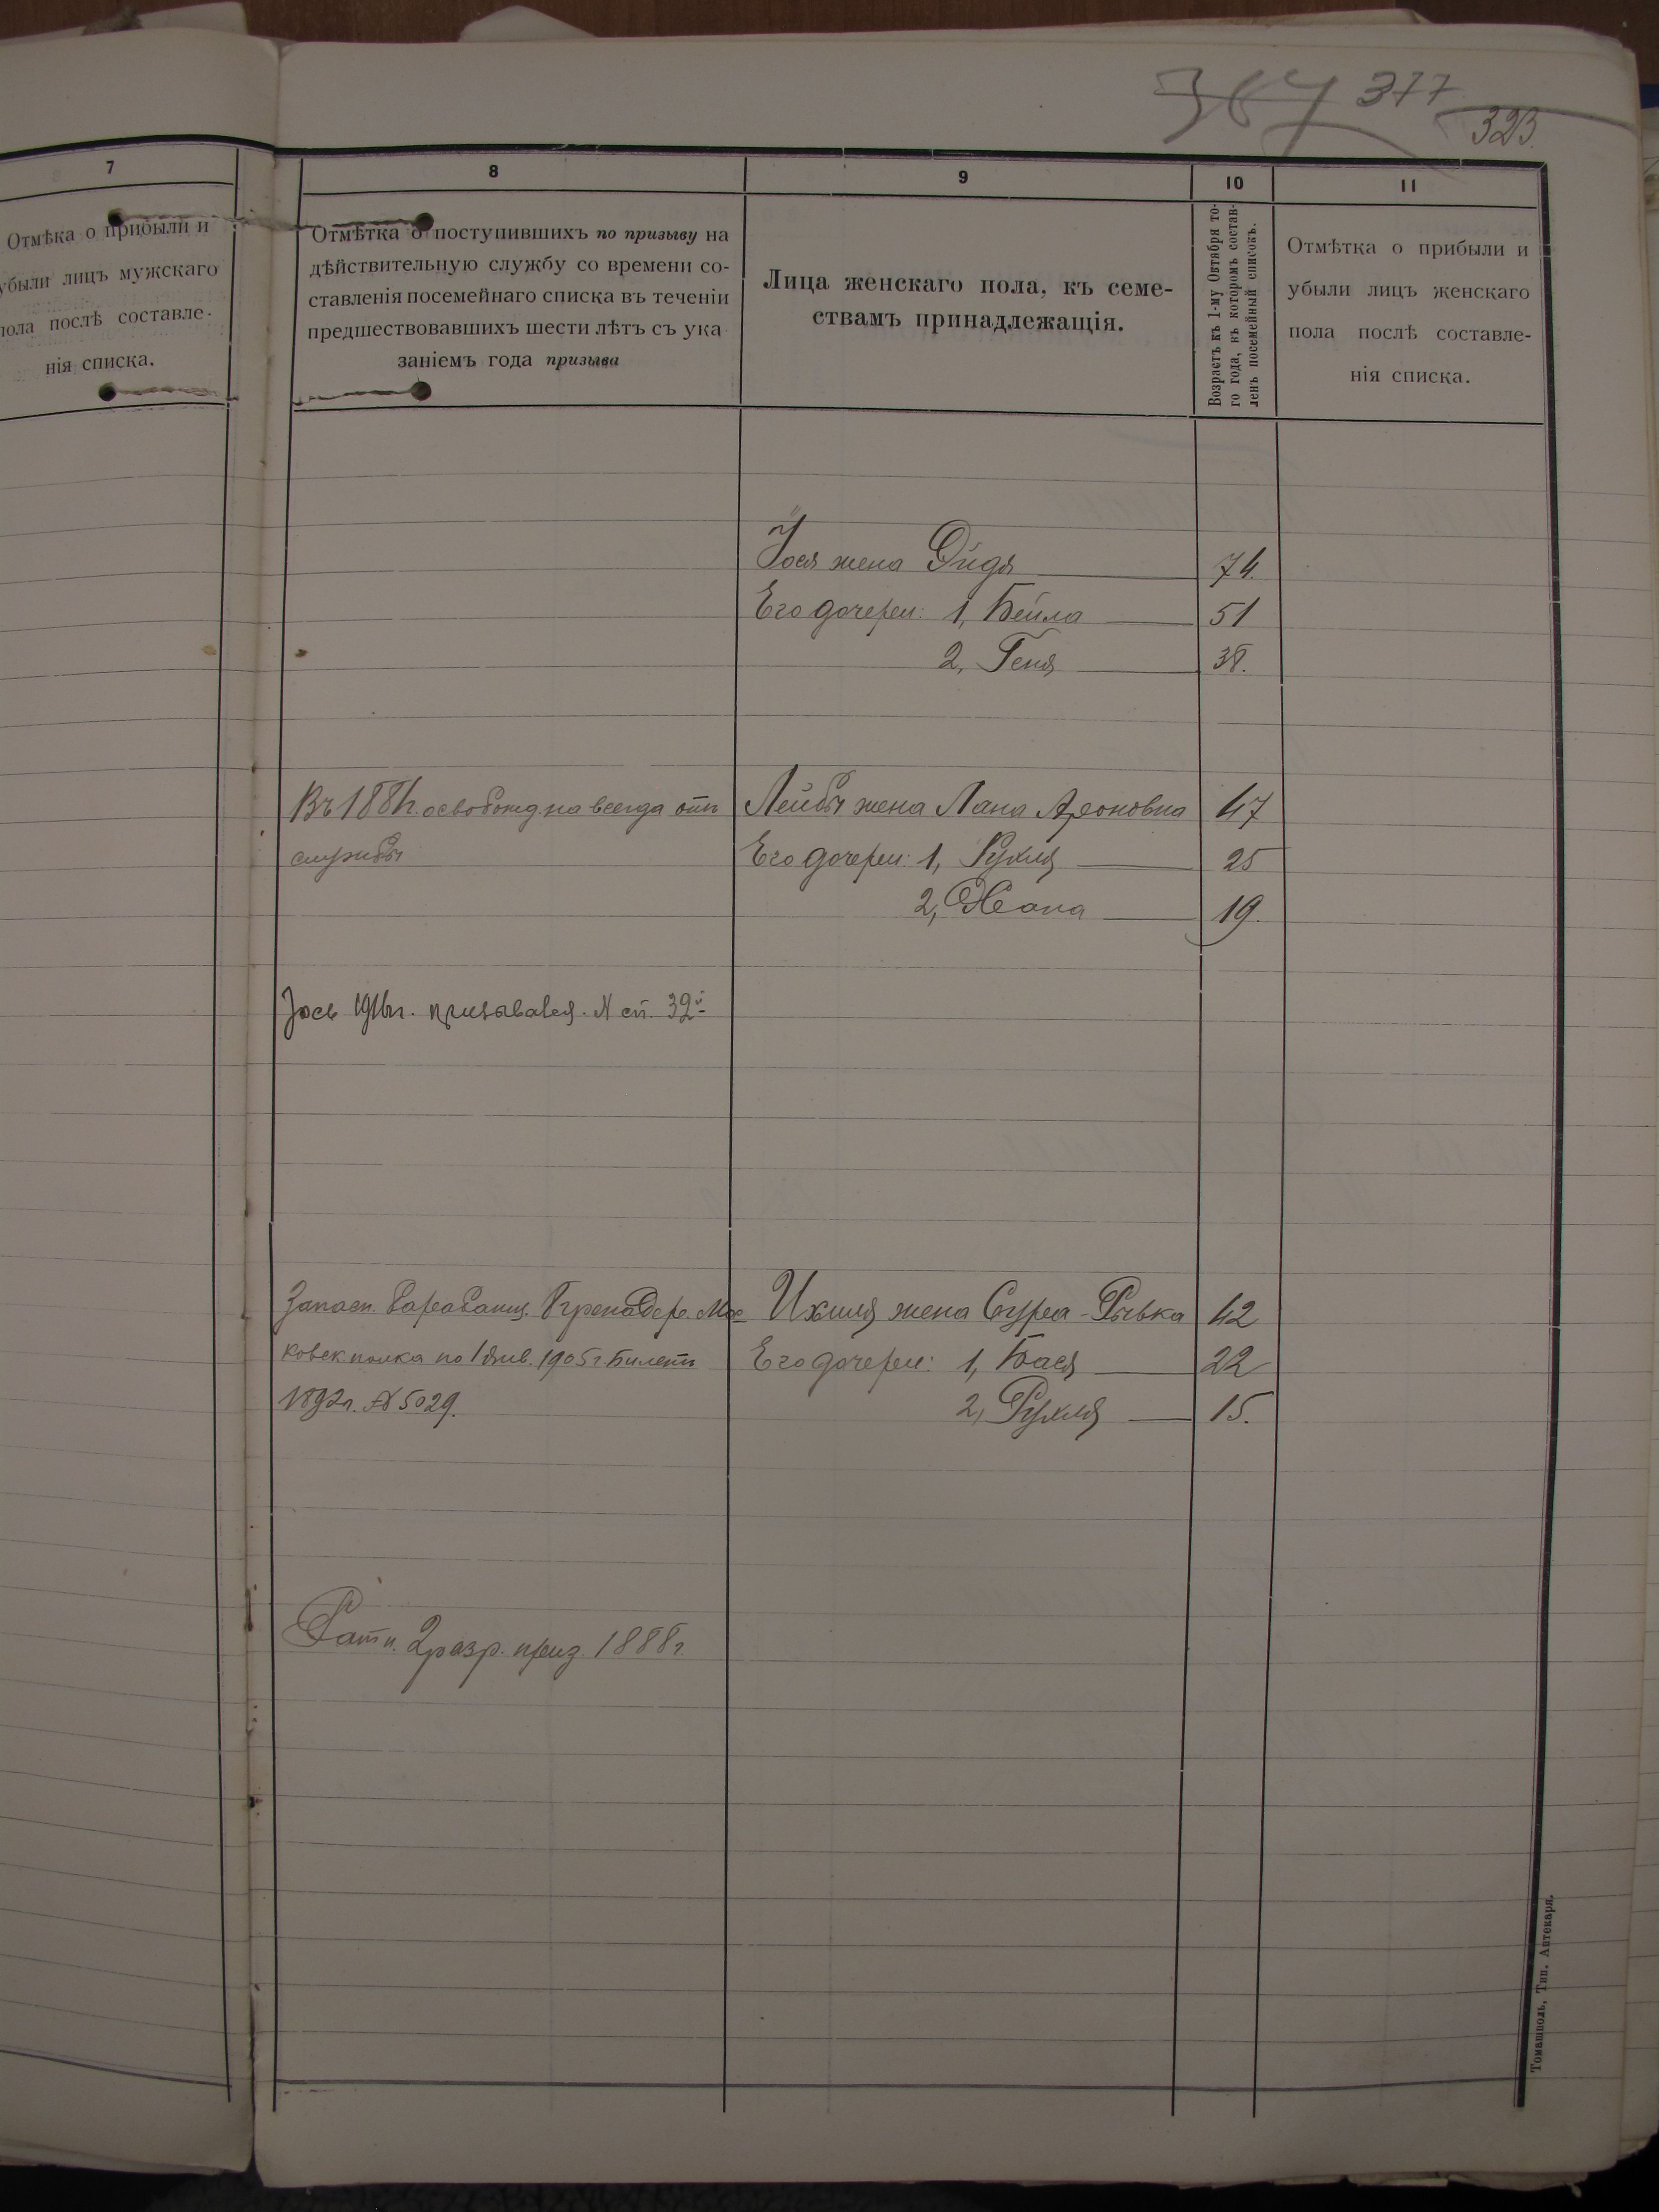 367 377
323.
7
Отмѣка о прибыли и
убыли лицъ мужскаго
пола послѣ составле-
нія списка.
8
Отмѣтка о поступившихъ по призыву на
дѣйствительную службу со времени со-
ставленія посемейнаго списка въ теченіи
предшествовавшихъ шести лѣтъ съ ука
заніемъ года призыва
9
Лица женскаго пола, къ семе-
ствамъ принадлежащія.
10
Возрастъ къ 1-му Октября то-
го года, въ которомъ состав-
ленъ посемейный списокъ.
11
Отмѣтка о прибыли и
убыли лицъ женскаго
пола послѣ составле-
нія списка.
Іося жена Эйдя 74.
Его дочери: 1, Бейла 51
2, Геня 38.
Въ 1881г. освобожд. на всегда отъ
службы
Лейбы жена Лана Ароновна 47
Его дочери: 1, Рухля 25
2, Хана 19.
Іось 1916г. призывался. N сп. 32й
Запасн. барабанщ. Гренадер. Мос
ковск. полка по 1 Янв. 1905г. Билетъ
1892г. № 5029.
Ихиля жена Сура-Рывка 42
Его дочери: 1, Бася 22
2, Рухля 15.
Ратн. 2 разр. приз. 1888г.
Томашполь, Тип. Аптекаря.